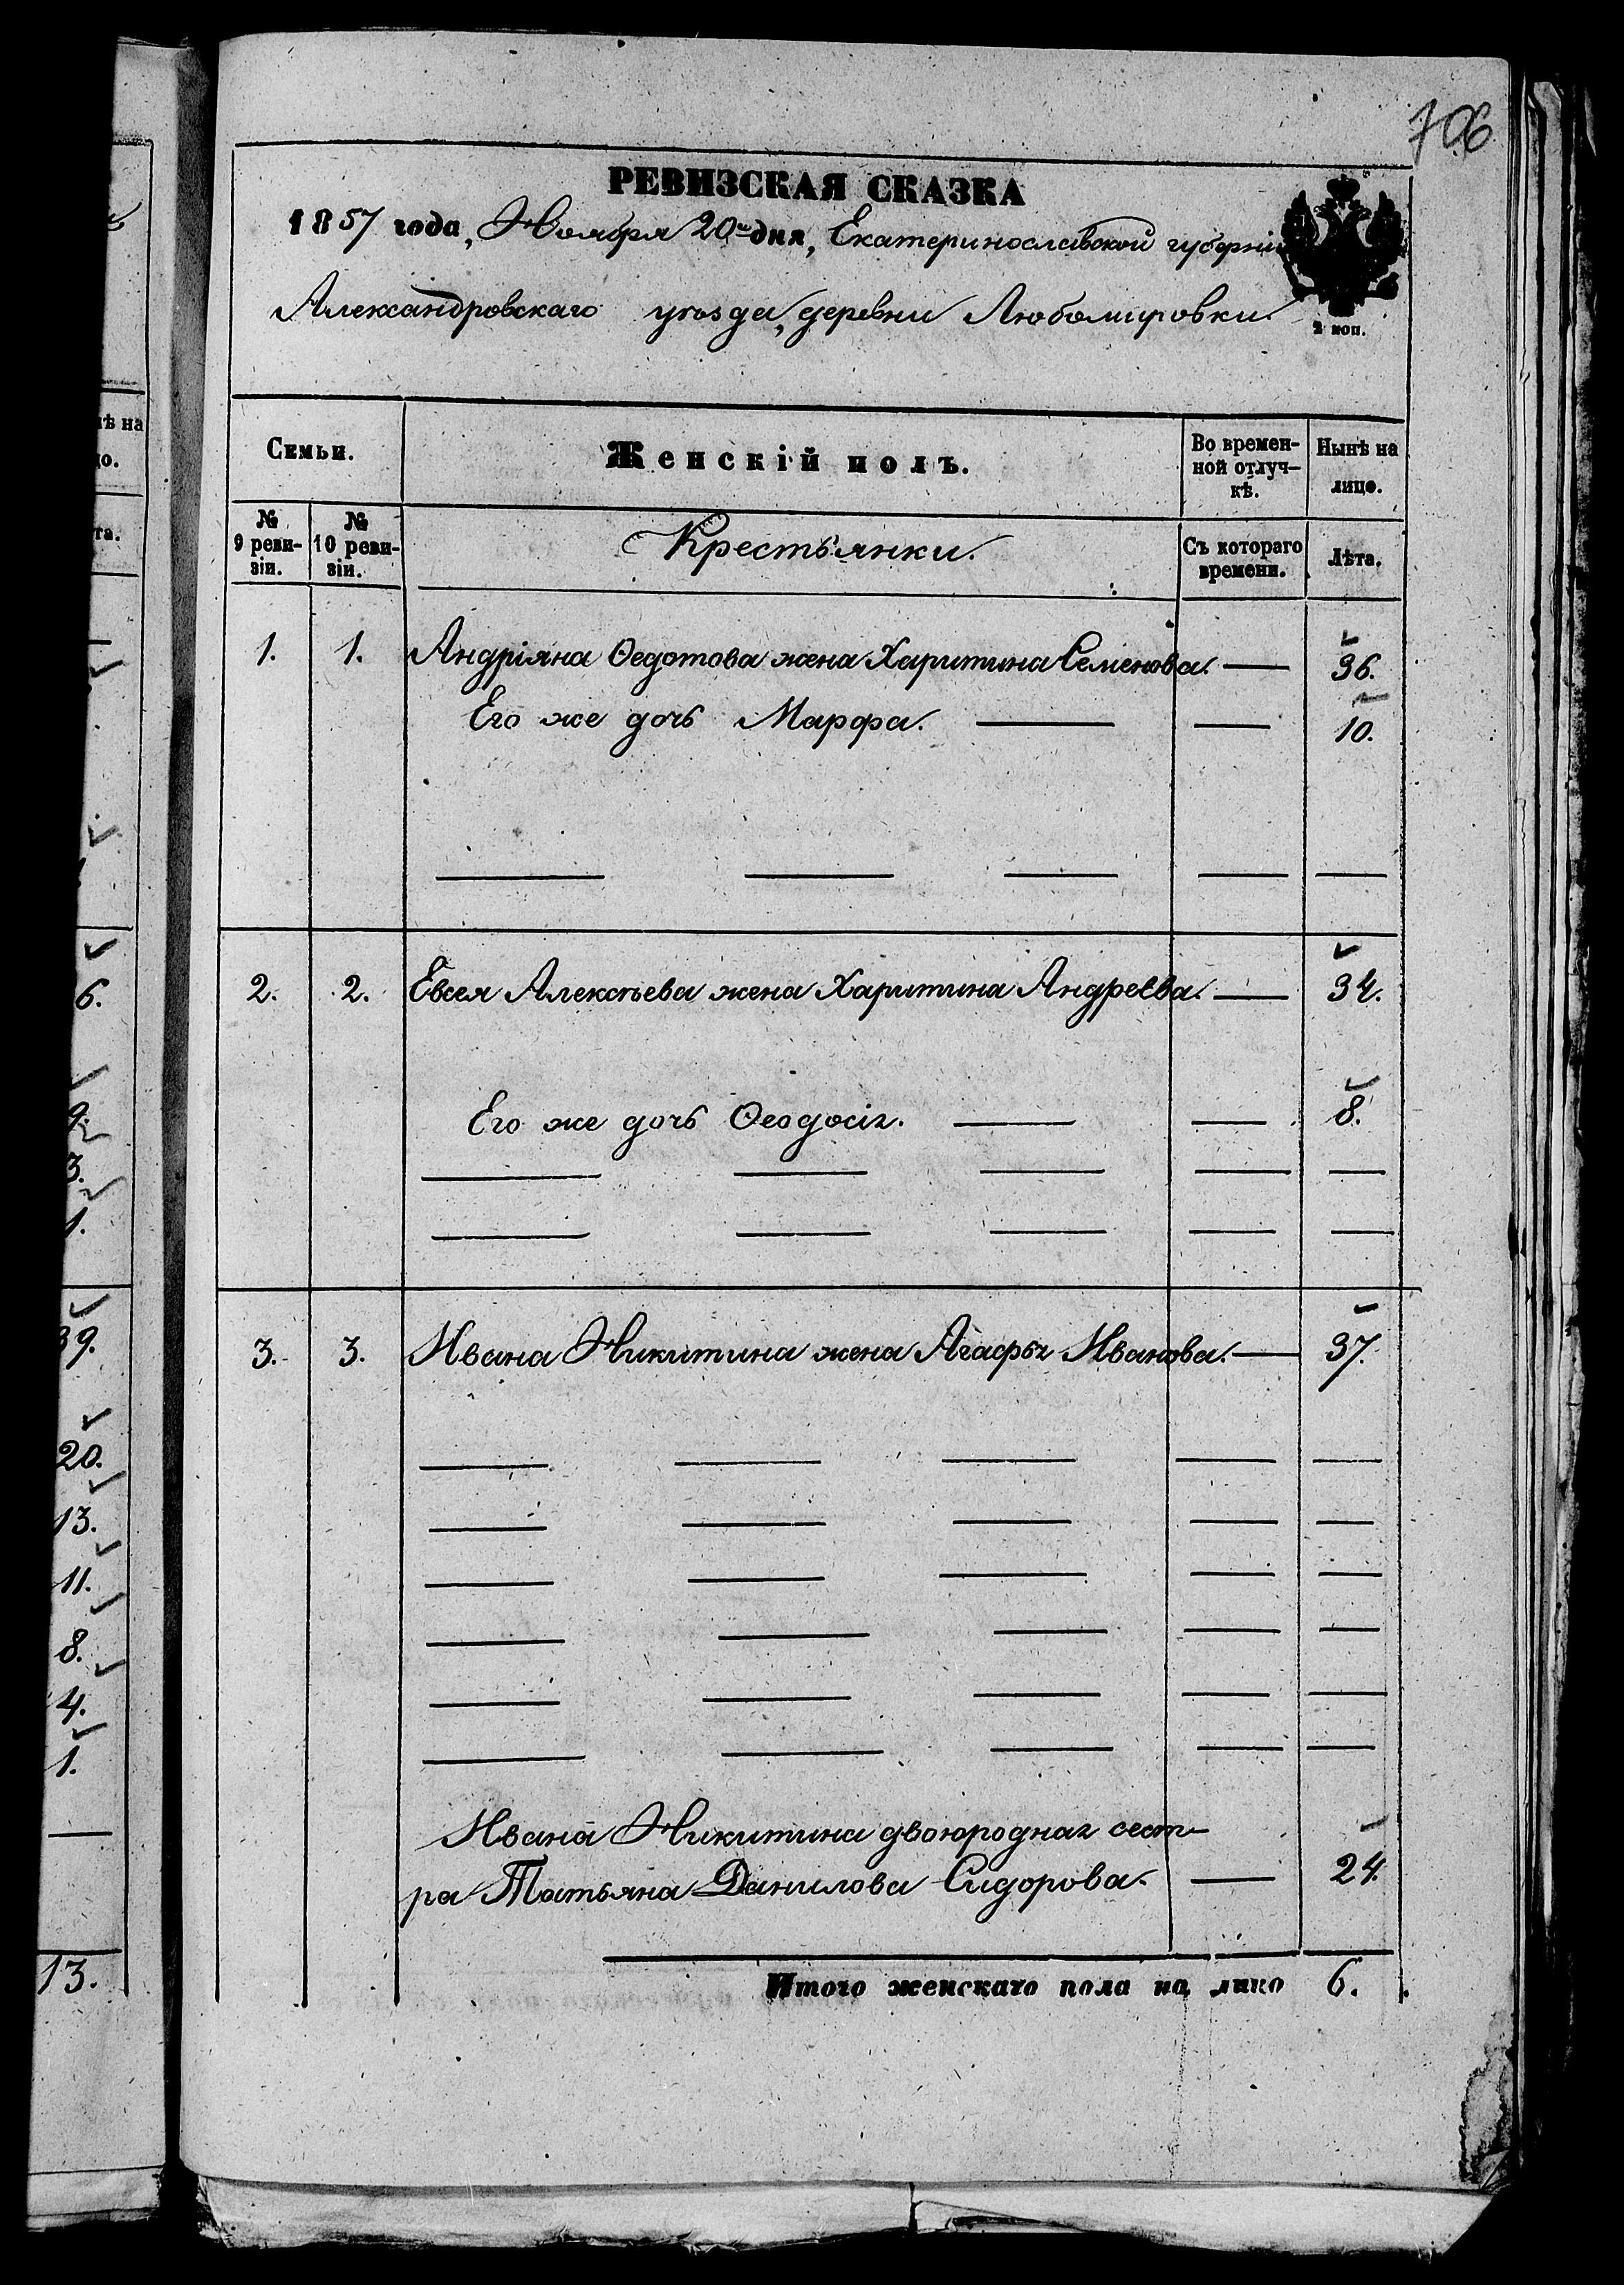 706
РЕВИЗСКАЯ СКАЗКА
1857 года, Ноября 20го дня, Екатеринославской губерніи
Александровскаго уѣзда, деревни Любомировки.
2 коп.
ѣ на
о.
та.
Семьи.
Женскій полъ.
Во времен-
ной отлуч-
кѣ.
Нынѣ на
лицо.
№
9 реви-
зіи.
№
10 реви-
зіи.
Крестьянки.
Съ котораго
времени.
Лѣта.
1. 1. Андріяна Ѳедотова жена Харитина Семенова. — 36.
Его же дочь Марфа. — — 10.
2. 2. Евсея Алексѣева жена Харитина Андреева. — 34.
Его же дочь Ѳеодосія. — — 8.
3. 3. Ивана Никитина жена Агафья Иванова. — 37.
Ивана Никитина двоюродная сест-
ра Татьяна Данилова Сидорова. — 24.
Итого женскаго пола на лицо 6.
6.
9.
3.
1.
39.
20.
13.
11.
8.
4.
1.
13.